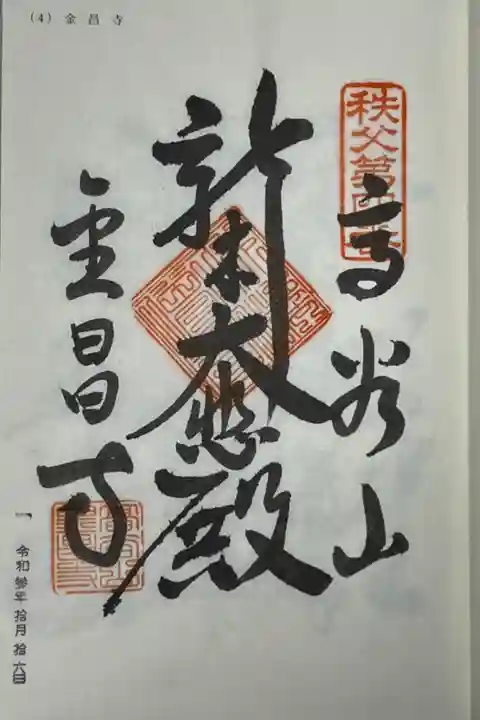 (4) 金昌寺
秩父第四番
高谷山
新木大悲殿
金昌寺
令和参年拾月拾六日